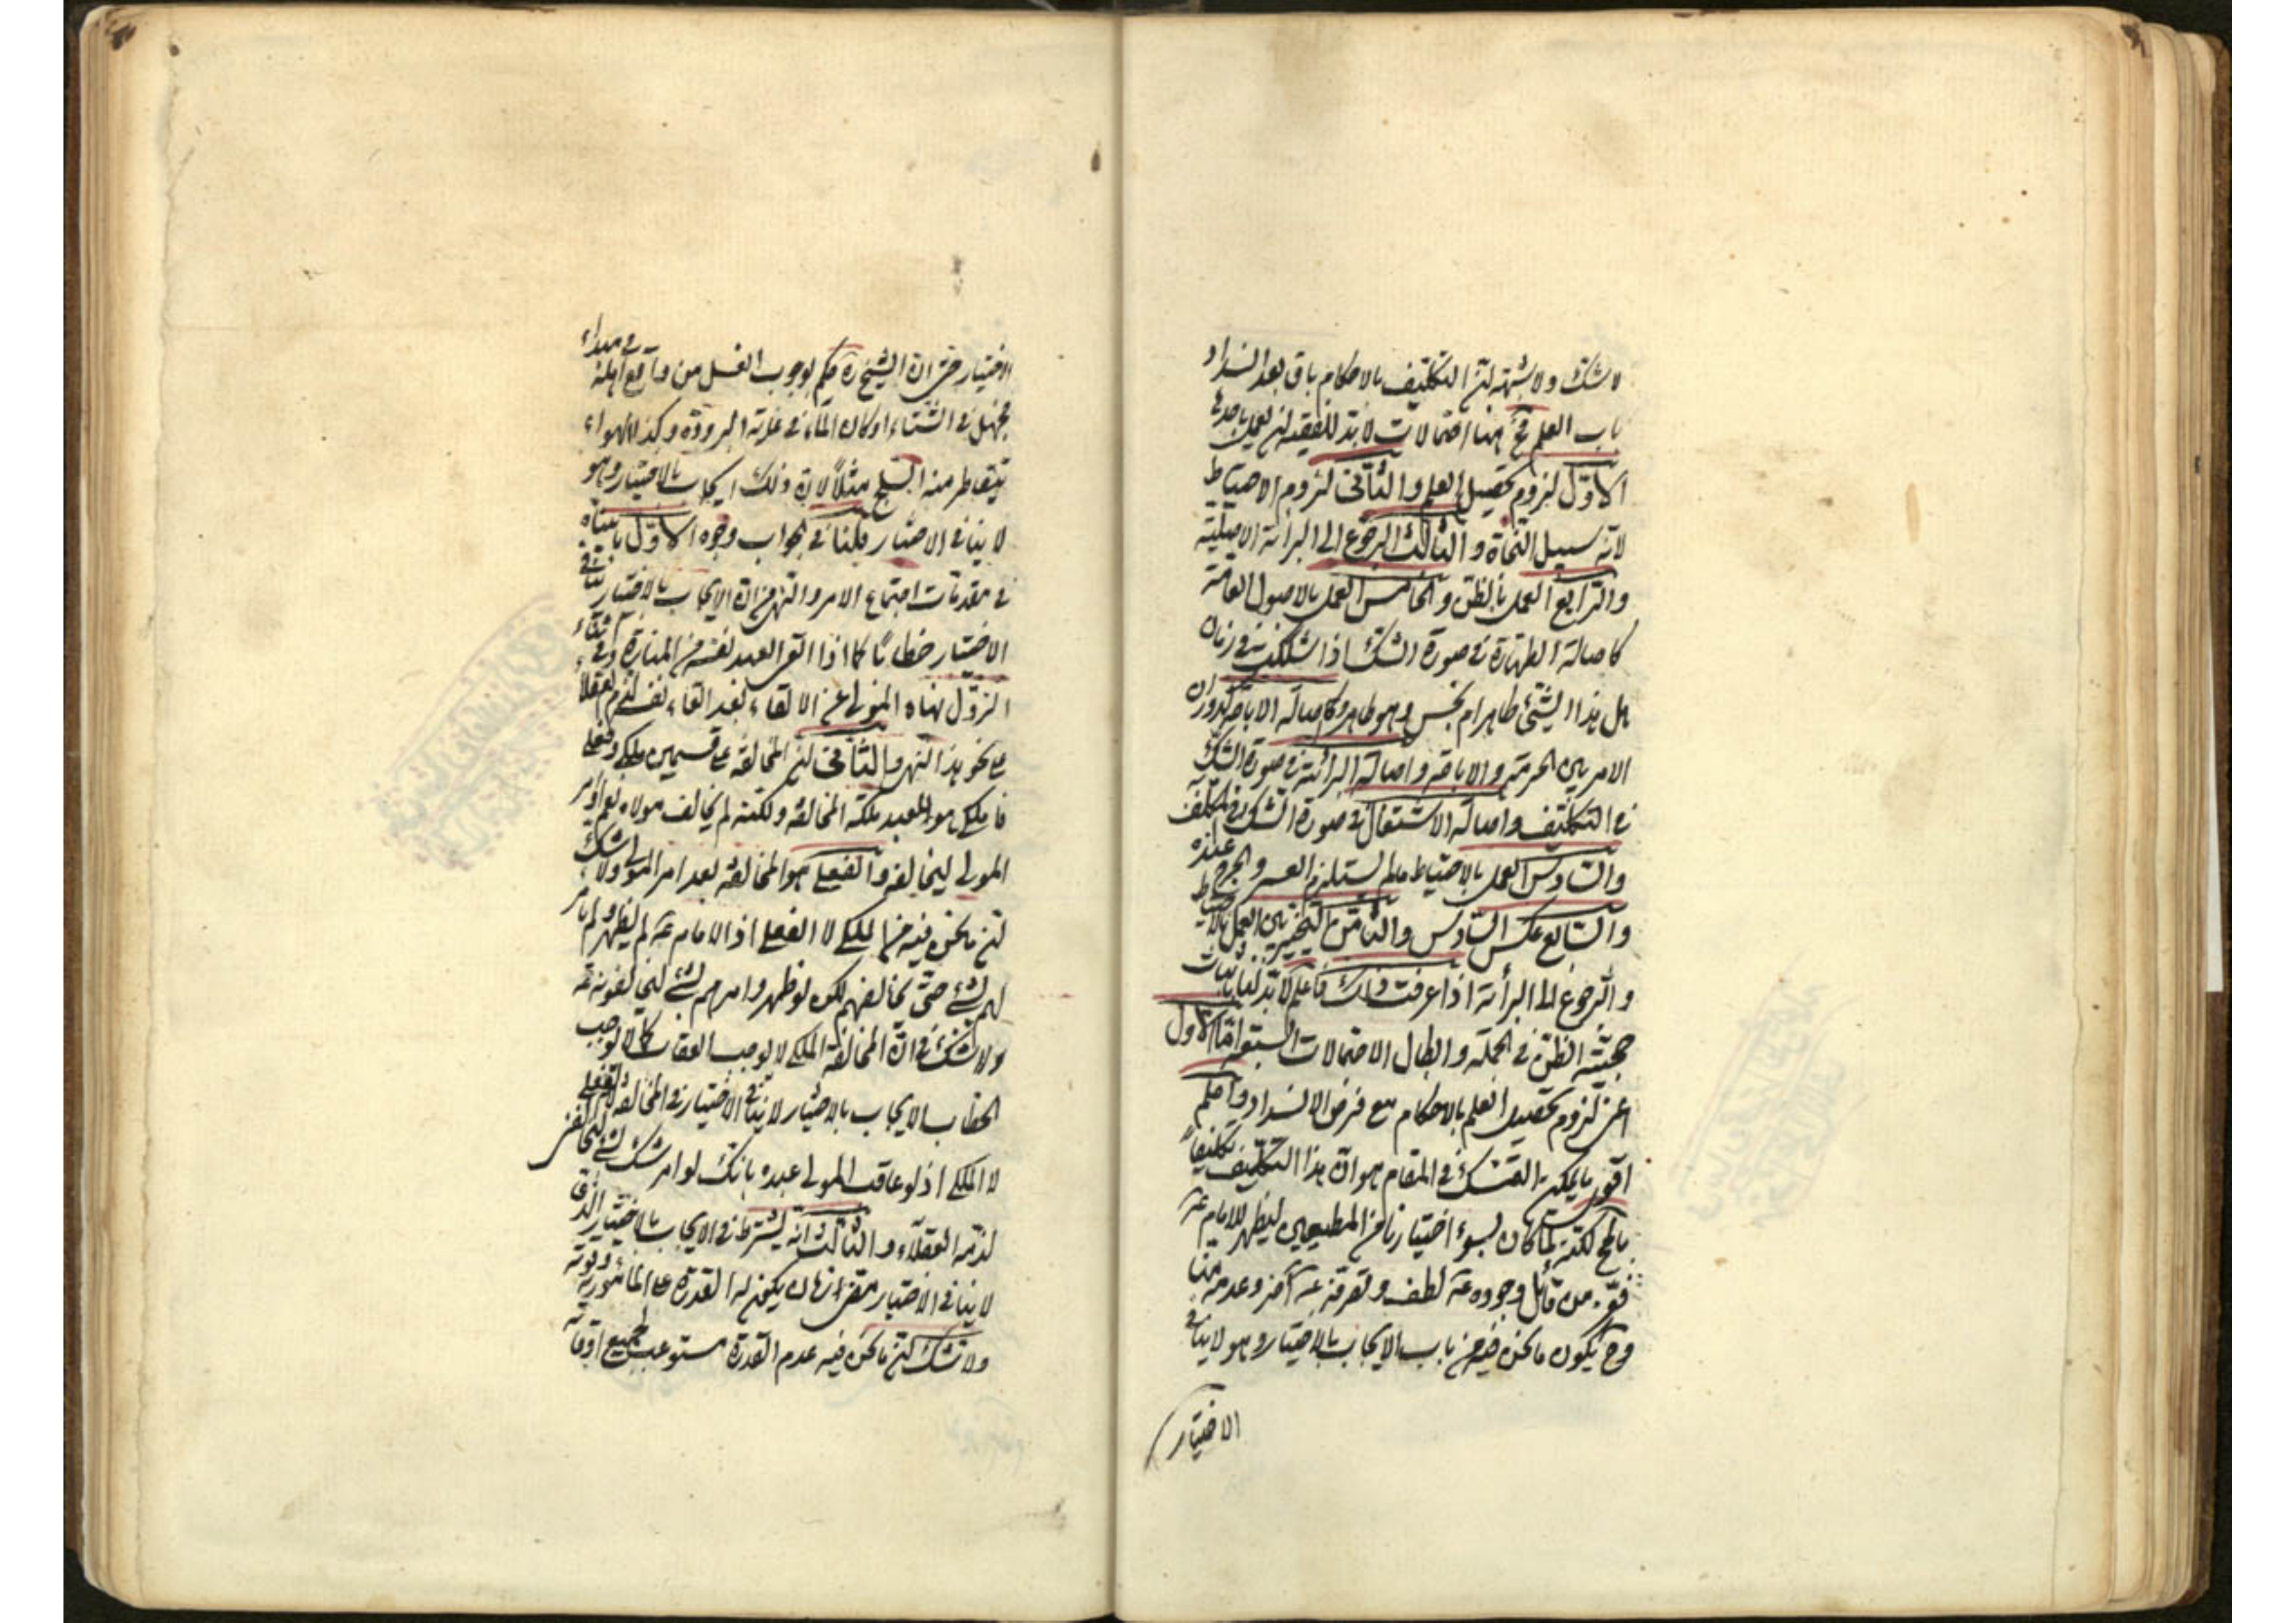 لا شك ولا شبهة لن التكليف بالاحكام باق بعد انسداد
باب العلم فح هنا احتمالات لابد للفقيه لن يعمل باحدى
الاول لزوم تحصيل العلم والثانى لزوم الاحتياط
لانه سبيل النجاة والثالث الرجوع الى البرائة الاصلية
والرابع العمل بالظن والخامس العمل بالاصول العامة
كاصالة الطهارة فى صورة الشك اذا شككت فى زمان
هل هذا الشىء طاهر ام نجس وهو طاهر وكاصالة الاباحة لدوران
الامر بين الحرمة والاباحة واصالة البرائة فى صورة الشك
فى التكليف واصالة الاشتغال فى صورة الشك فى المكلف
والسادس العمل بالاحتياط ما لم يستلزم العسر والحرج
والسابع عكس السادس والثامن التخيير بين العمل بالاحتياط
والرجوع الى البرائة اذا عرفت ذلك فاعلم لابد لنا باثبات
حجية الظن فى الجملة وابطال الاحتمالات السبعة اما الاول
اعنى لزوم تحصيل العلم بالاحكام مع فرض الانسداد
اقوى ما يمكن التمسك فى المقام هو ان هذا التكليف تكليفا
بالمح لكنه لما كان بسوء اختيارنا من المطيعين ليظهر للامام عه
من قائل وجوده عه لطف وتصرفه عه آخر وعدمه منا
وح يكون ما نحن فيه من باب الايجاب بالاختيار وهو لا ينافى
الاختيار
الاختيار حتى ان الشيخ ره حكم بوجوب الغسل من واقع اهله
فى الشتاء او كان الماء فى غاية البرودة وكذا الهواء
يتقاطر منه الثلج مثلا لان ذلك ايجاب بالاختيار وهو
لا ينافى الاختيار قلنا فى الجواب وجوه الاول ما بيناه
فى مقدمات اجتماع الامر والنهى من ان الايجاب بالاختيار ينافى
الاختيار خطابا كما اذا القى العبد نفسه من المنارة وفى
النزول نهاه المولى عن الالقاء بعد القاء نفسه لذم العقلاء
على نحو هذا النهى والثانى لن المخالفة على قسمين ملكى وفعلى
فالملكى هو للعبد ملكة المخالفة ولكنه لم يخالف مولاه
المولى ليخالفه والفعلى هو المخالفة بعد امر المولى ولا شك
لن ما نحن فيه من الملكى لا الفعلى اذ الامام عه لم يظهر ولم يامر
لهم بشىء حتى نخالفهم لكن لو ظهر وامرهم بشىء ليخالفونه عه
ولا شك فى ان المخالفة الملكى لا يوجب العقاب كما لا يوجب
الخطاب الايجاب بالاختيار لا ينافى الاختيار فى المخالفة الفعلى
لا الملكى اذ لو عاقب المولى عبده بانك لو امرتك بشىء لتخالفنى
لذمه العقلاء والثالث انه يشترط فى الايجاب بالاختيار الذى
لا ينافى الاختيار يكون له القدرة على المأمور به
ولا شك لن ما نحن فيه عدم القدرة مستوعب لجميع اوقاته